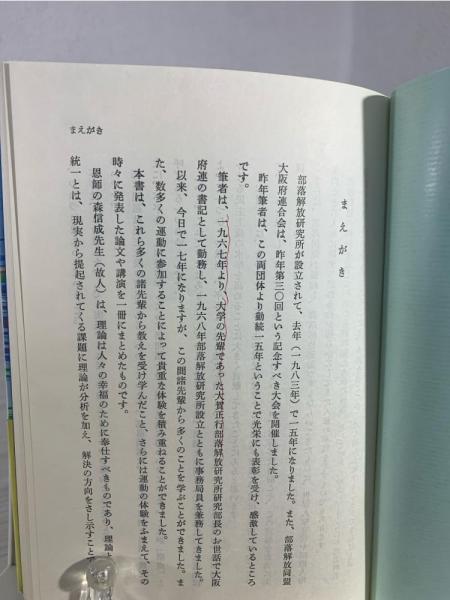 まえがき
まえがき
部落解放研究所が設立されて、去年(一九八三年)で一五年になりました。また、部落解放同盟
大阪府連合会は、昨年第三〇回という記念すべき大会を開催しました。
昨年筆者は、この両団体より勤続一五年ということで光栄にも表彰を受け、感激しているところ
です。
筆者は、一九六七年より、大学の先輩であった大賀正行部落解放研究所研究部長のお世話で大阪
府連の書記として勤務し、一九六八年部落解放研究所設立とともに事務局員を兼務してきました。
以来、今日で一七年になりますが、この間諸先輩から多くのことを学ぶことができました。ま
た、数多くの運動に参加することによって貴重な体験を積み重ねることができました。
本書は、これら多くの諸先輩から教えを受け学んだこと、さらには運動の体験をふまえて、その
時々に発表した論文や講演を一冊にまとめたものです。
恩師の森信成先生(故人)は、理論は人々の幸福のために奉仕すべきものであり、理論と
統一とは、現実から提起されてくる課題に理論が分析を加え、解決の方向をさし示すことで